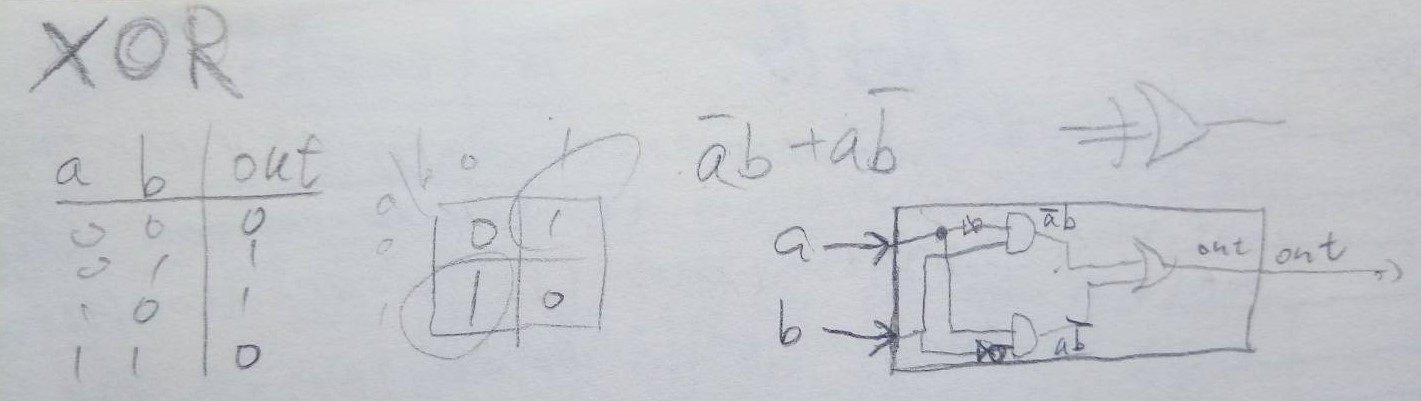 XOR
a b out
0 0 0
0 1 1
1 0 1
1 1 0
a\b 0 1
0 0 1
1 1 0
a̅b + ab̅
a a̅b out out
b ab̅